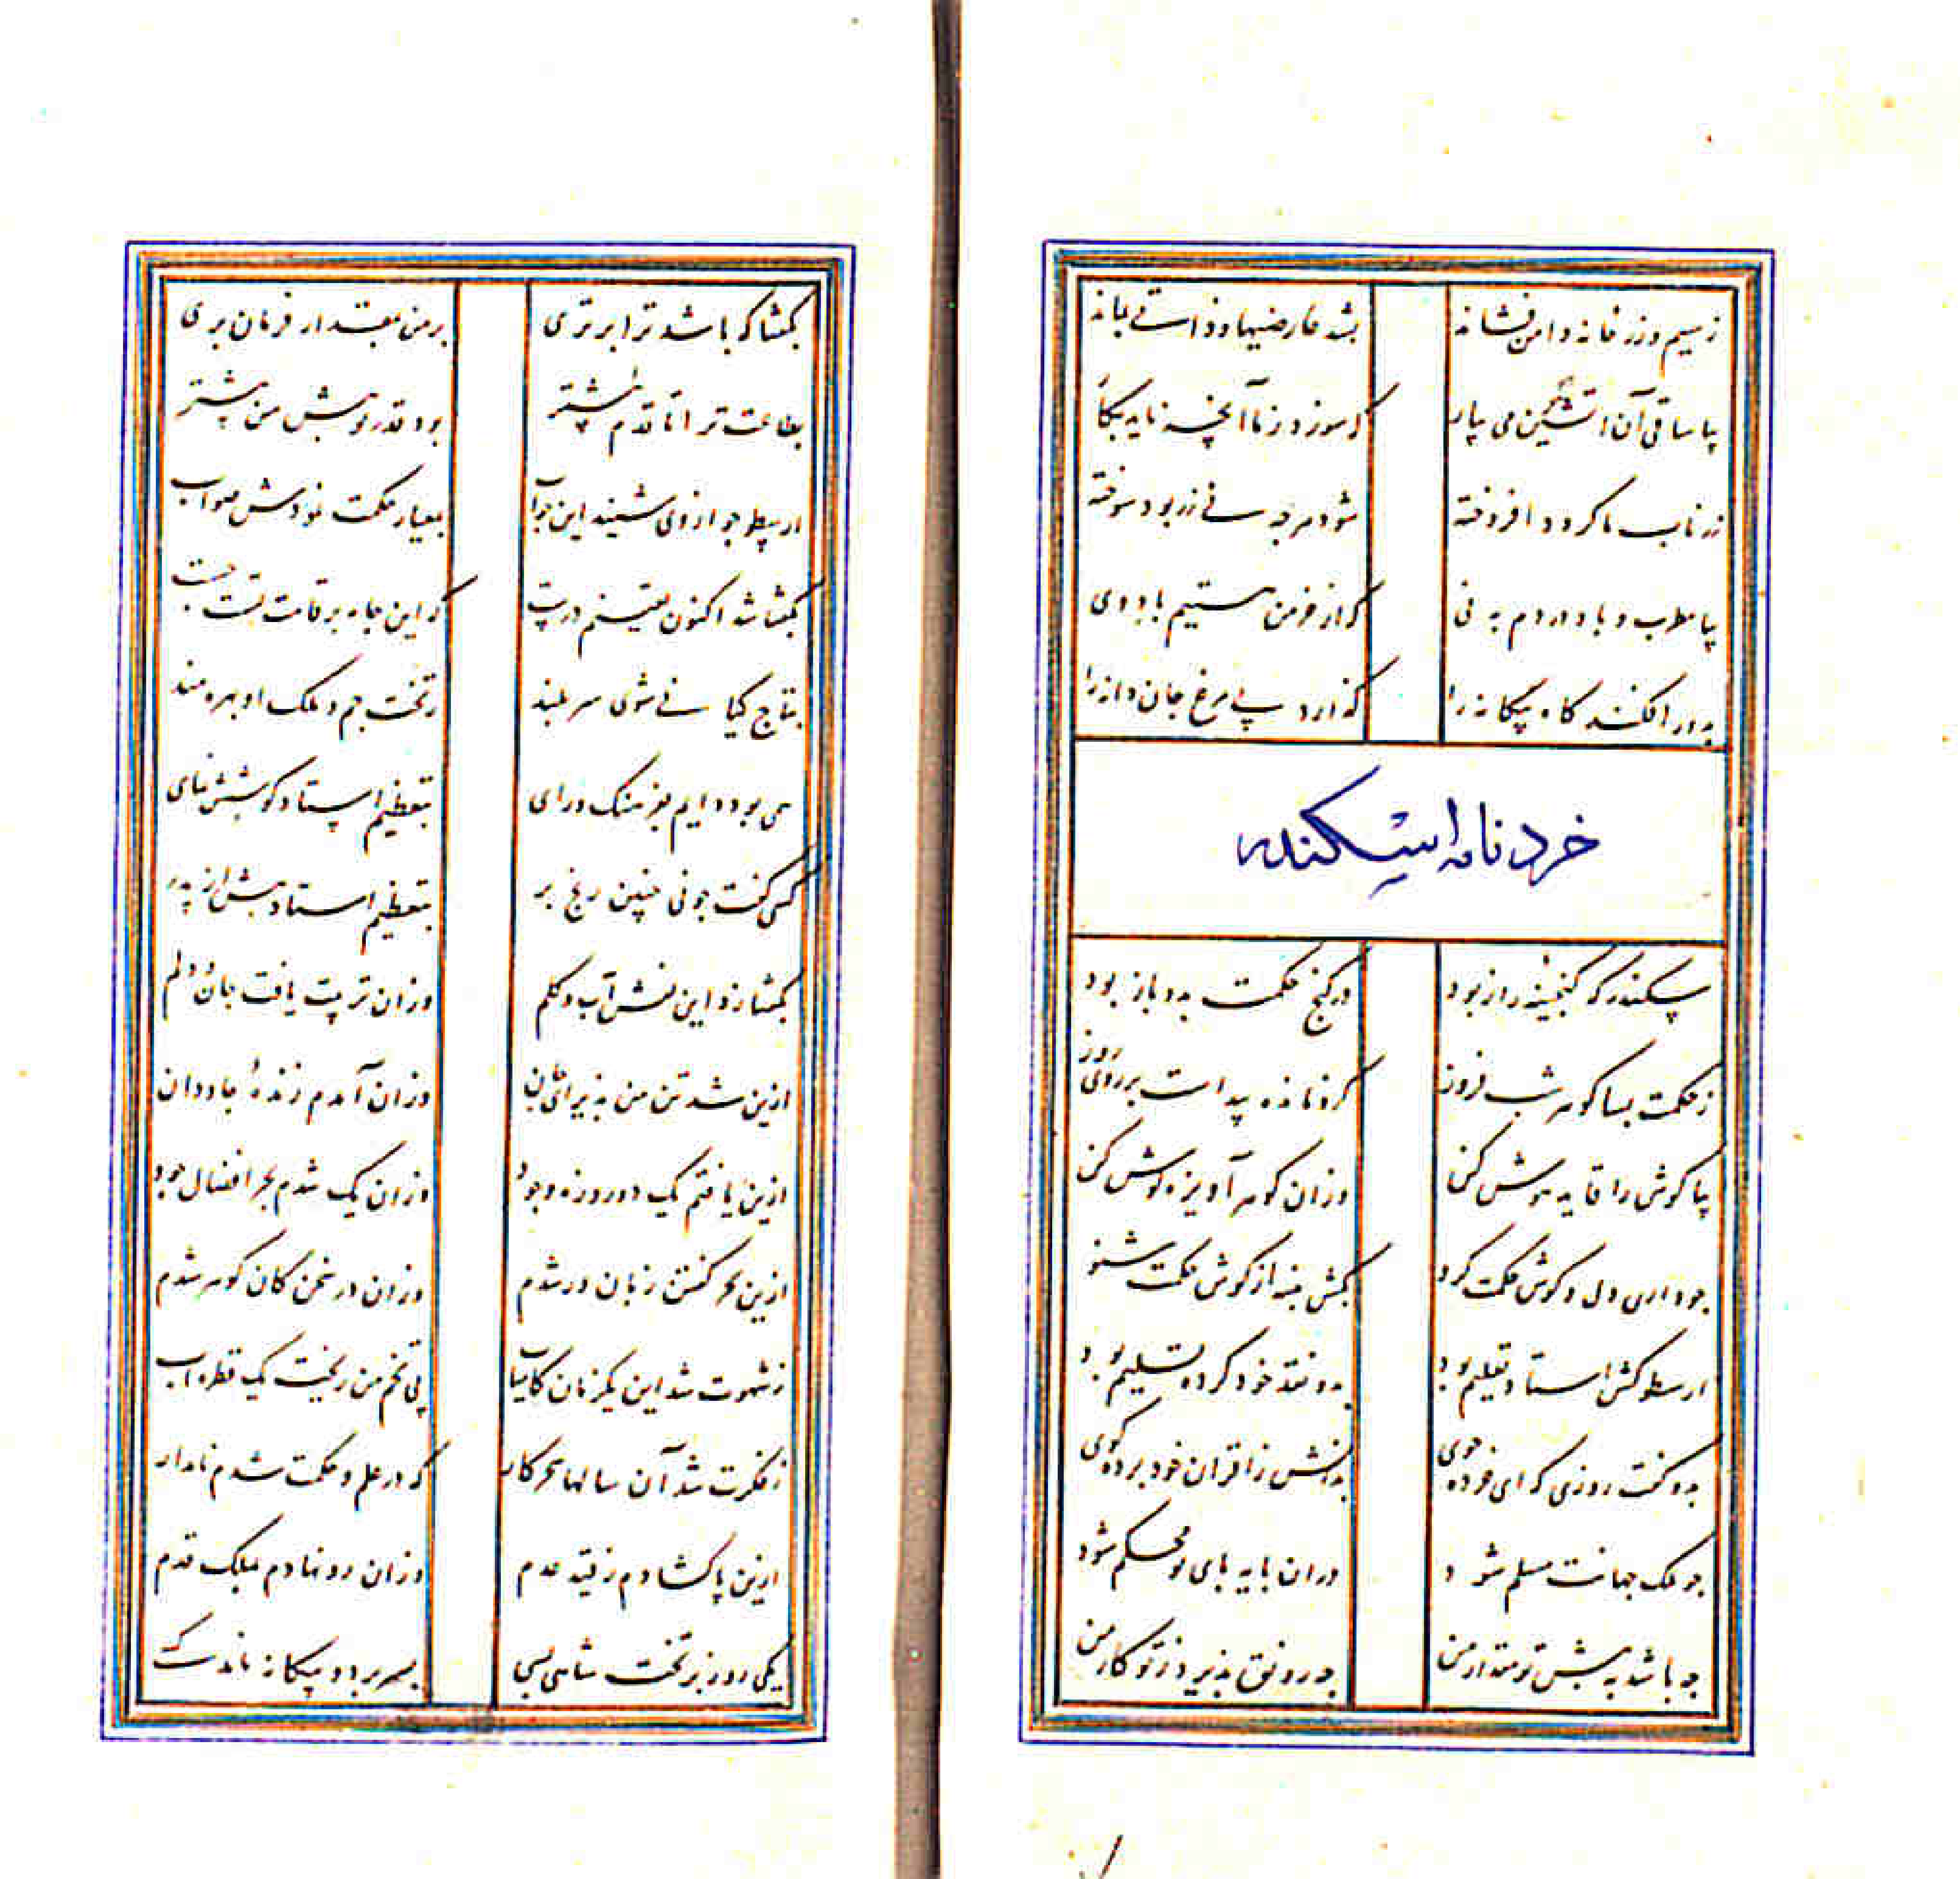 ز سیم و زر خانه دامن فشاند بشد عارضیها و ذاتی بماند
بیا ساقی آن آتشین می بیار که سوزد ز ما آنچه ناید بکار
زر ناب ما کردد افروخته شود هرچه نی زر بود سوخته
بیا مطرب و باد در دم به نی که از خرمن هستیم باد وی
بدور افکند کاه بیکانه را کذارد پی مرغ جان دانه را
خردنامه اسکندر
سکندر که کنجینه راز بود در کنج حکمت بدو باز بود
ز حکمت بسا کوهر شب فروز کزو مانده پیداست بر روی روز
بیا کوش را قاید هوش کن وزان کوهر آویزه کوش کن
جو داری دل و کوش حکمت کرو بکش پنبه از کوش حکمت شنو
ارسطو کش استاد تعلیم بود بدو نقد خود کرده تسلیم بود
بدو کفت روزی که ای خرده جوی بدانش ز اقران خود برده کوی
جو ملک جهانت مسلم شود در ان پایه پای تو محکم شود
جه باشد به پیش تو مقدار من جه رونق پذیرد ز تو کار من
بکفتا که باشد ترا برتری بر من بمقدار فرمان بری
بطاعت ترا تا قدم پیشتر بود قدر تو پیش من بیشتر
ارسطو جو از وی شنید این جواب بمعیار حکمت نمودش صواب
بکفتا شد اکنون یقینم درست که این جامه بر قامت تست جست
بتاج کیانی شوی سر بلند ز تخت جم و ملک او بهره مند
همی بود دایم بفرهنک و رای بتعظیم استاد کوشش نمای
کسی کفت جونی جنین رنج بر بتعظیم استاد بیش از پدر
بکفتا زد این نقش آب و کلم وزان تربیت یافت جان و دلم
ازین شد تن من پذیرای جان وزان آمدم زنده جاودان
ازین یافتم یک دو روزه وجود وزان یک شدم بحر افضال جود
ازین بهر کفتن زبان ور شدم وزان در سخن کان کوهر شدم
ز شهوت شد این یکزمان کامیاب پی تخم من ریخت یک قطره آب
ز فکرت شد آن سالها سحرکار که در علم و حکمت شدم نامدار
ازین پا کشادم ز قید عدم وزان رو نهادم بملک قدم
یکی روز بر تخت شاهی بسی بسر برد و بیکانه نامد کسی